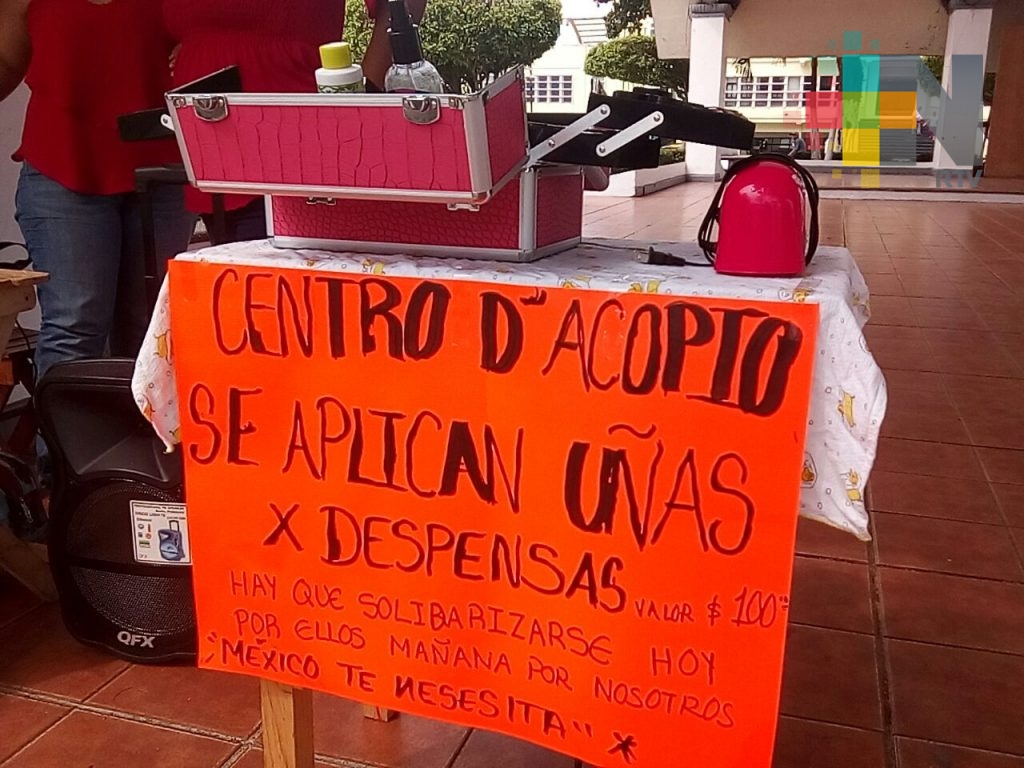 CENTRO D" ACOPIO
SE APLICAN UÑAS
X DESPENSAS VALOR $ 100.00
HAY QUE SOLIBARIZARSE HOY
POR ELLOS MAÑANA POR NOSOTROS
"MÉXICO TE NESESITA" *
QFX
RTV